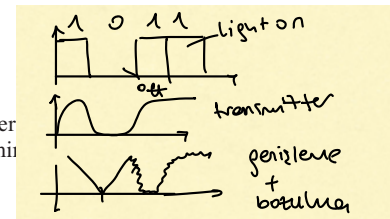 1 0 1 1 light on
off
transmitter
er
genişleme
+
bozulma